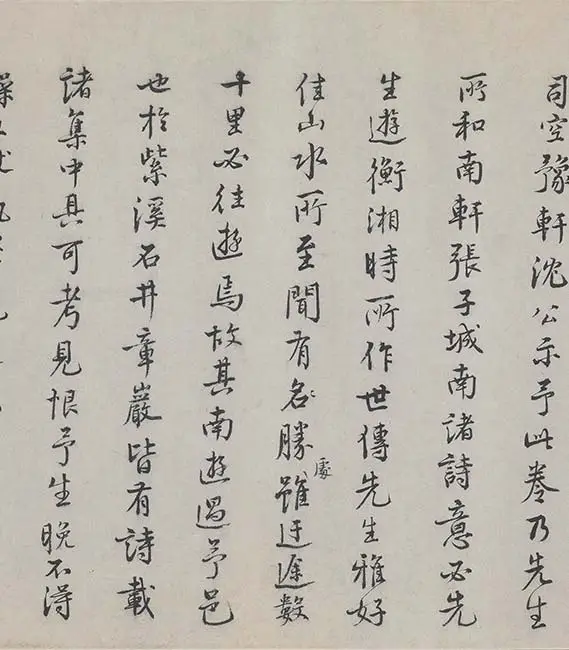 司空豫軒沈公示予此卷乃先生
所和南軒張子城南諸詩意必先
生遊衡湘時所作世傳先生雅好
佳山水所至聞有名勝處雖迂途數
千里必往遊焉故其南遊過予邑
也於紫溪石井章巖皆有詩載
諸集中具可考見恨予生晚不得